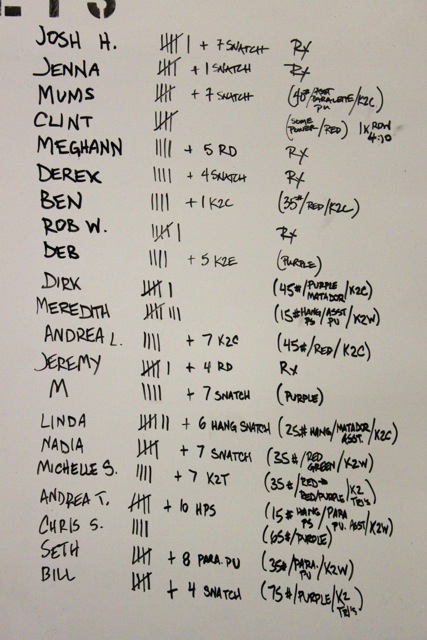 JOSH H. 𝍸 | + 7 SNATCH Rx
JENNA 𝍸 + 1 SNATCH Rx
MUMS 𝍸 + 7 SNATCH (40#/ASST PARALETTE PU/K2C)
CLINT 𝍸 (SOME POWER/RED) 1K ROW 4:10
MEGHANN |||| + 5 RD Rx
DEREK |||| + 4 SNATCH Rx
BEN |||| + 1 K2C (35#/RED/K2C)
ROB W. 𝍸 | Rx
DEB |||| + 5 K2E (PURPLE)
DIRK 𝍸 | (45#/PURPLE MATADOR/K2C)
MEREDITH 𝍸 ||| (15# HANG PS/ASST PU/K2W)
ANDREA L. |||| + 7 K2C (45#/RED/K2C)
JEREMY 𝍸 | + 4 RD Rx
M |||| + 7 SNATCH (PURPLE)
LINDA 𝍸 || + 6 HANG SNATCH (25# HANG/MATADOR ASST./K2C)
NADIA 𝍸 + 7 SNATCH (35#/RED GREEN/K2W)
MICHELLE S. |||| + 7 K2T (35#/RED→RED/PURPLE/K2 TRI'S)
ANDREA T. 𝍸 + 10 HPS (15# HANG PS/PARA PU. ASST/K2W)
CHRIS S. |||| (65#/PURPLE)
SETH 𝍸 + 8 PARA. PU (35#/PARA. PU/K2W)
BILL 𝍸 + 4 SNATCH (75#/PURPLE/K2 TRI'S)